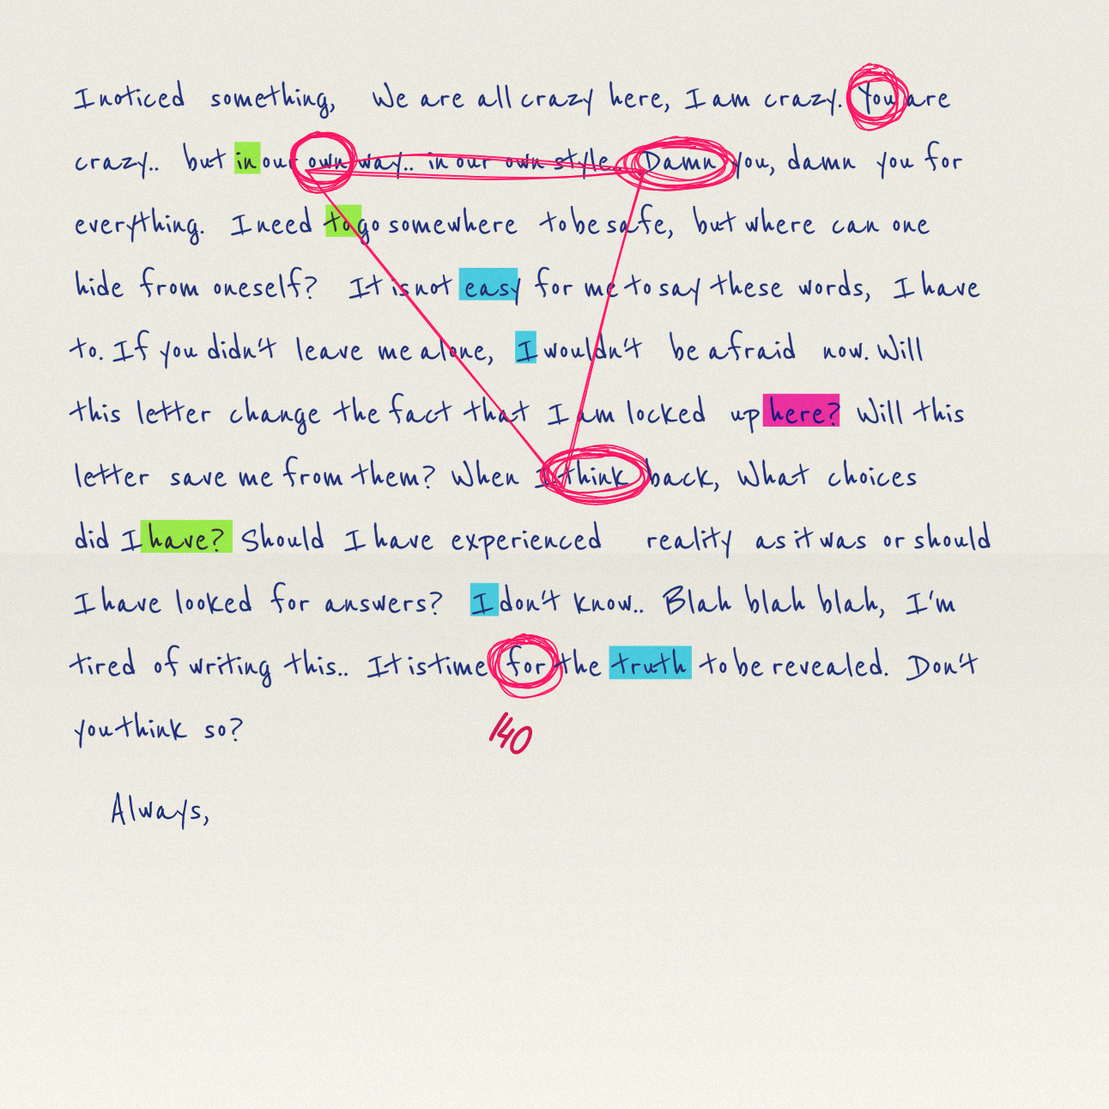 I noticed something, We are all crazy here, I am crazy. You are
crazy.. but in our own way.. in our own style. Damn you, damn you for
everything. I need to go somewhere to be safe, but where can one
hide from oneself? It is not easy for me to say these words, I have
to. If you didn't leave me alone, I wouldn't be afraid now. Will
this letter change the fact that I am locked up here? Will this
letter save me from them? When I think back, What choices
did I have? Should I have experienced reality as it was or should
I have looked for answers? I don't know.. Blah blah blah, I'm
tired of writing this.. It is time for the truth to be revealed. Don't
you think so?
140
Always,